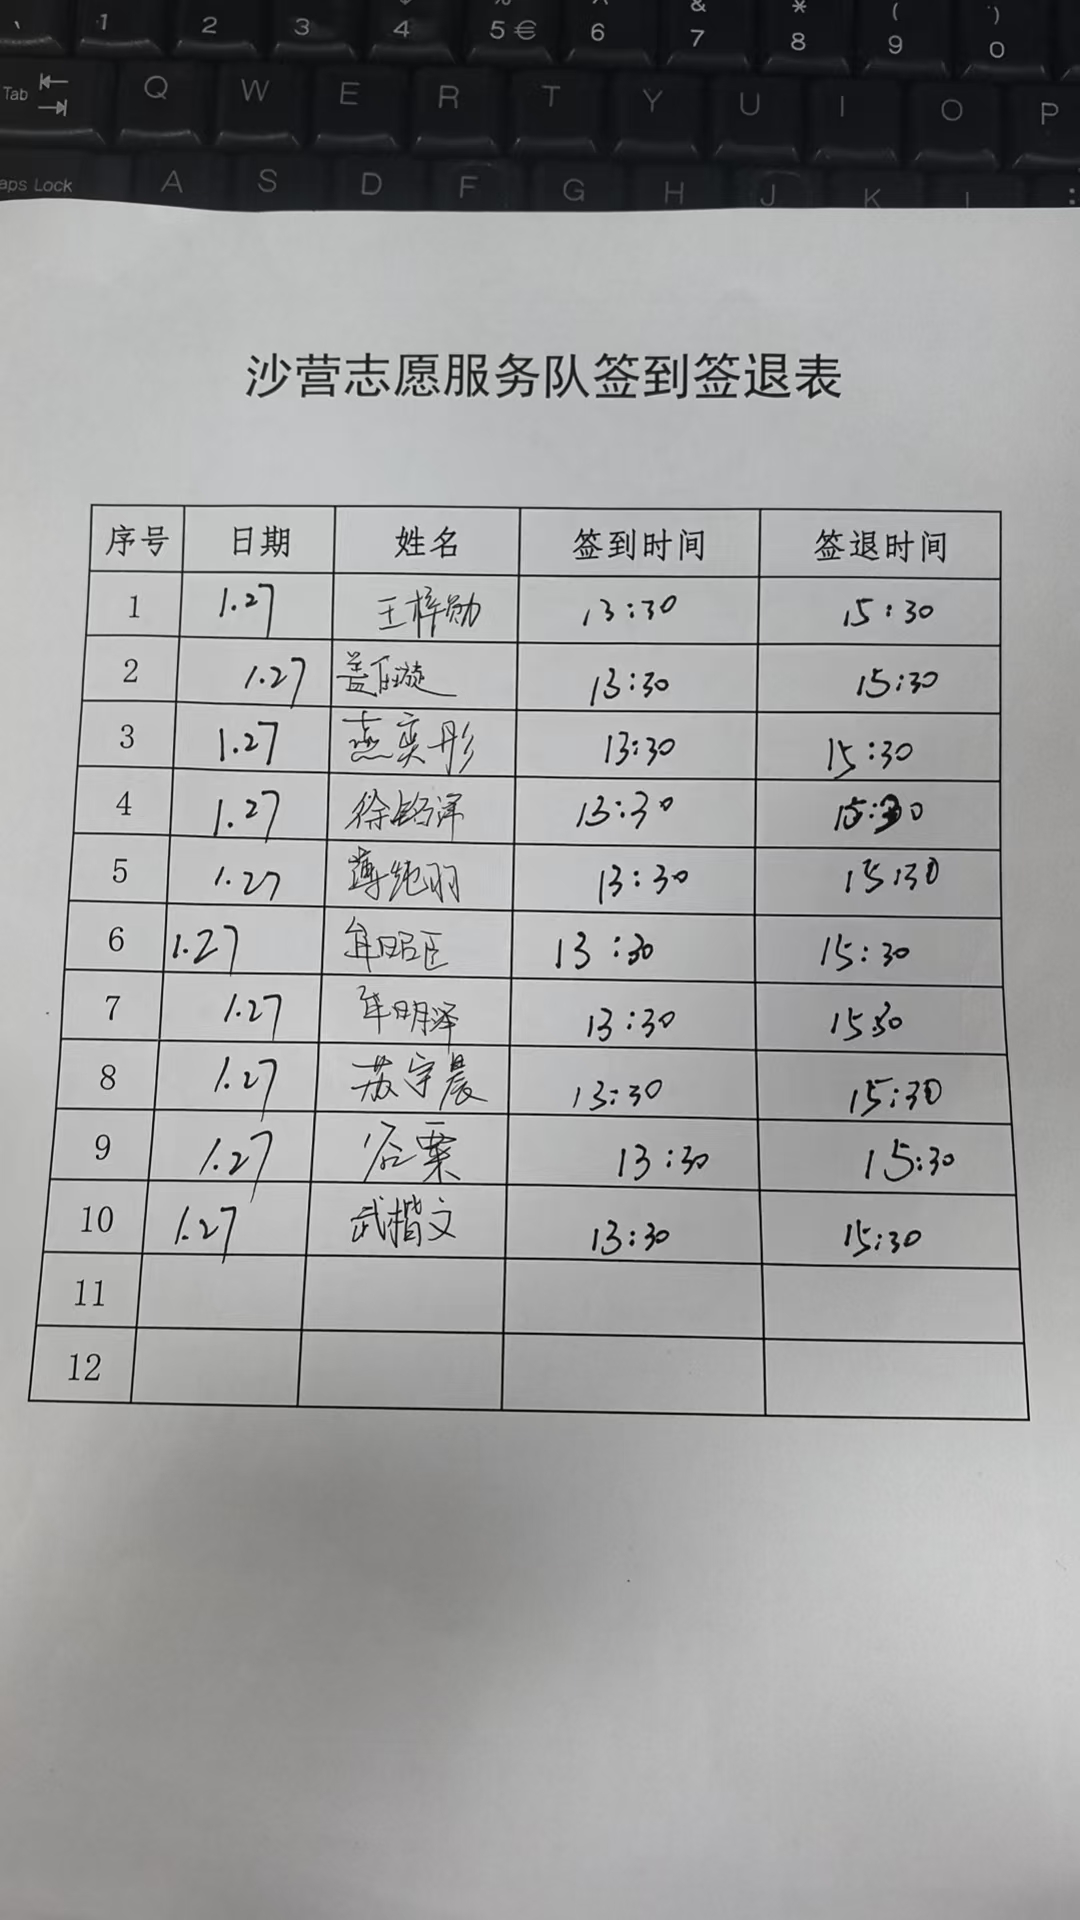 ` 1 2 3 4 5 € 6 & 7 * 8 ( 9 ) 0
Tab Q W E R T Y U I O P
aps Lock A S D F G H J K L :
沙营志愿服务队签到签退表
序号 日期 姓名 签到时间 签退时间
1 1.27 王梓勋 13:30 15:30
2 1.27 13:30 15:30
3 1.27 燕奕彤 13:30 15:30
4 1.27 徐铭泽 13:30 15:30
5 1.27 薄纯羽 13:30 15:30
6 1.27 13:30 15:30
7 1.27 牟明泽 13:30 15:30
8 1.27 苏宇晨 13:30 15:30
9 1.27 13:30 15:30
10 1.27 武楷文 13:30 15:30
11
12